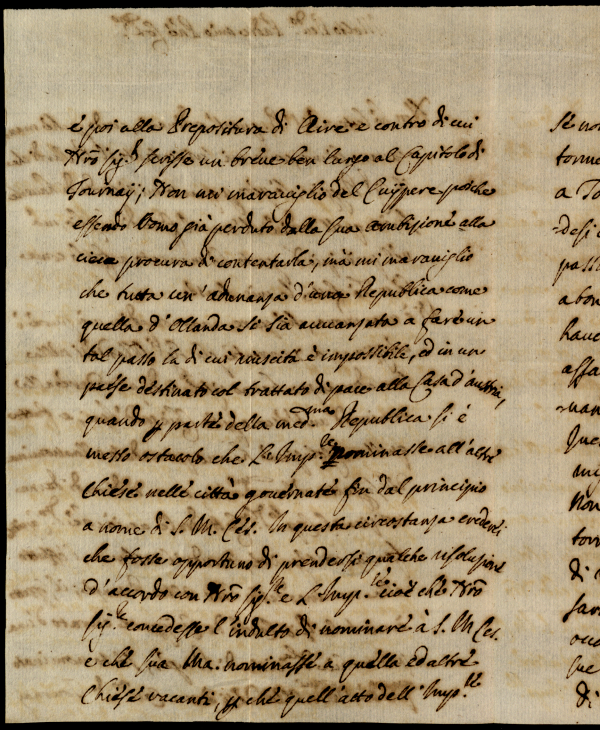 e poi alla Prepositura di Aire e contro di cui
Nrõ Sig.e scrisse un breve ben lungo al Capitolo di
Tournaÿ; Non mi maraviglio del Cuÿpere poiche
essendo Uomo già perduto dalla sua ambizione alla
cieca procura di contentarla, mà mi maraviglio
che tutta un'adunanza d'una Republica come
quella d'Ollanda si sia avvanzata a fare un
tal passo la di cui riuscita è impossibile, ed in un
paese destinato col trattato di pace alla Casa d'austria,
quando p parte della med.ma Republica si è
messo ostacolo che L'Imp.re nominasse all'altre
Chiese nelle città governate fin dal principio
a nome di S. M. Ces. In questa circostanza crederei
che fosse opportuno di prendersi qualche risoluzione
d'accordo con Nrõ Sig.re e L'Imp.re cioè che Nrõ
Sig.re concedesse l'indulto di nominare à S. M Ces.
e che sua Ma. nominasse a quella ed altre
Chiese vacanti, p che quell'atto dell'Imp.re
Se non
torme
a To
-desi
passa
a bon
have
affa
-van
que
mi
Non
torn
di
fare
occa
que
di